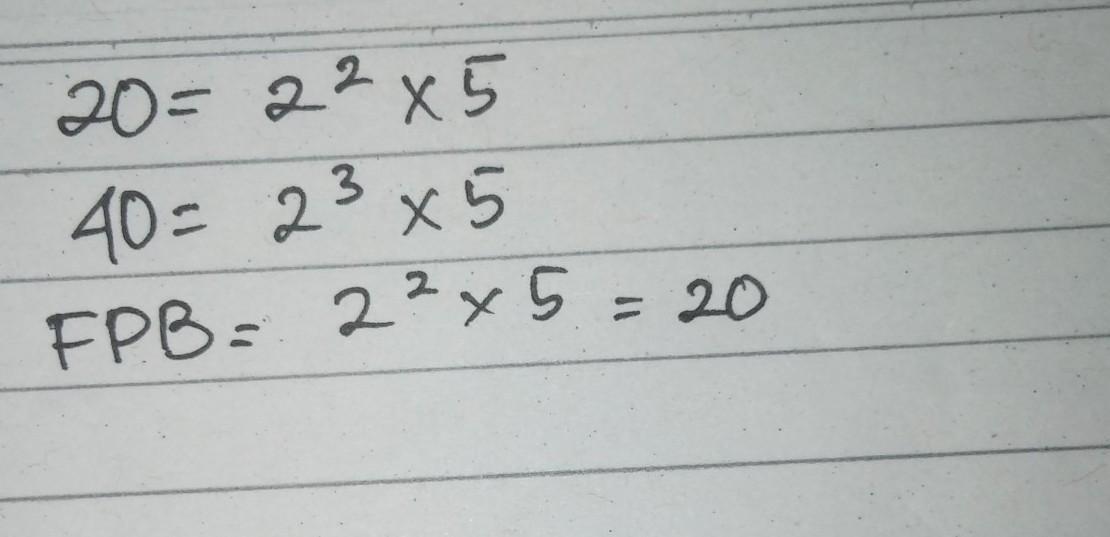 20 = 2² × 5
40 = 2³ × 5
FPB = 2² × 5 = 20